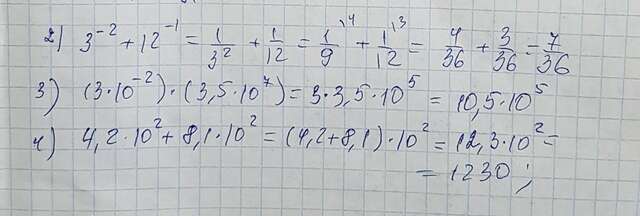 2) 3⁻² + 12⁻¹ = 1/3² + 1/12 = 1\⁴/9 + 1\³/12 = 4/36 + 3/36 = 7/36
3) (3·10⁻²)·(3,5·10⁷) = 3·3,5·10⁵ = 10,5·10⁵
4) 4,2·10² + 8,1·10² = (4,2+8,1)·10² = 12,3·10² =
= 1230;